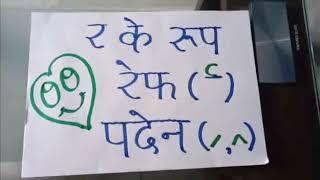 र के रूप
रेफ ( र्  )
पदेन ( ्र , ^ )